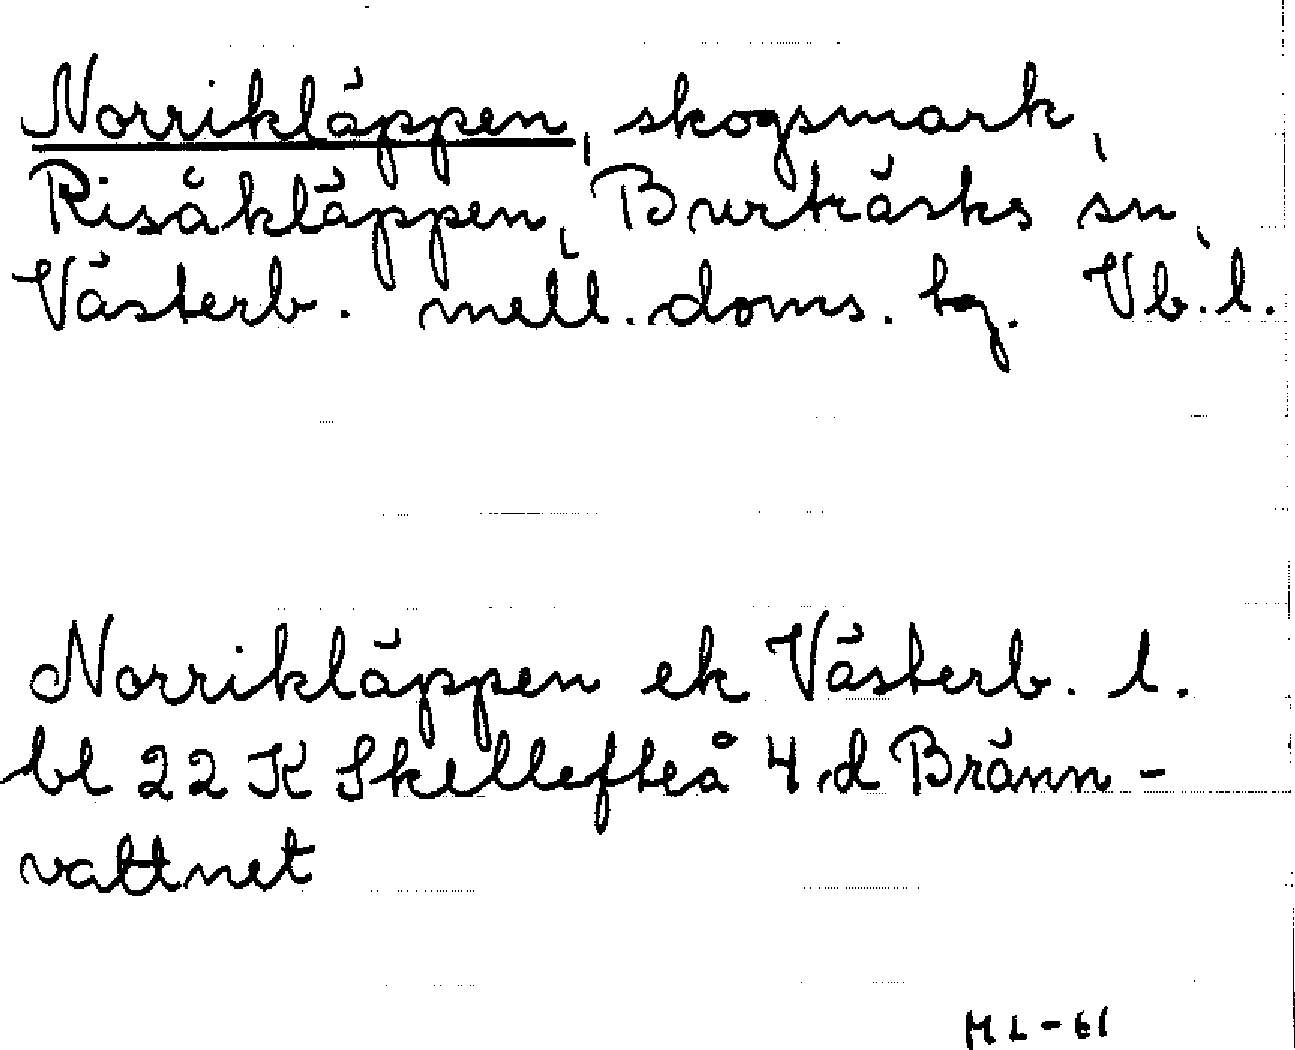 Norrikläppen, skogsmark,
Risåkläppen, Burträsks sn,
Västerb. mell. doms. tg. Vb. l.
Norrikläppen ek Västerb. l.
bl 22 K Skellefteå 4 d Bränn-
vattnet
ML-61